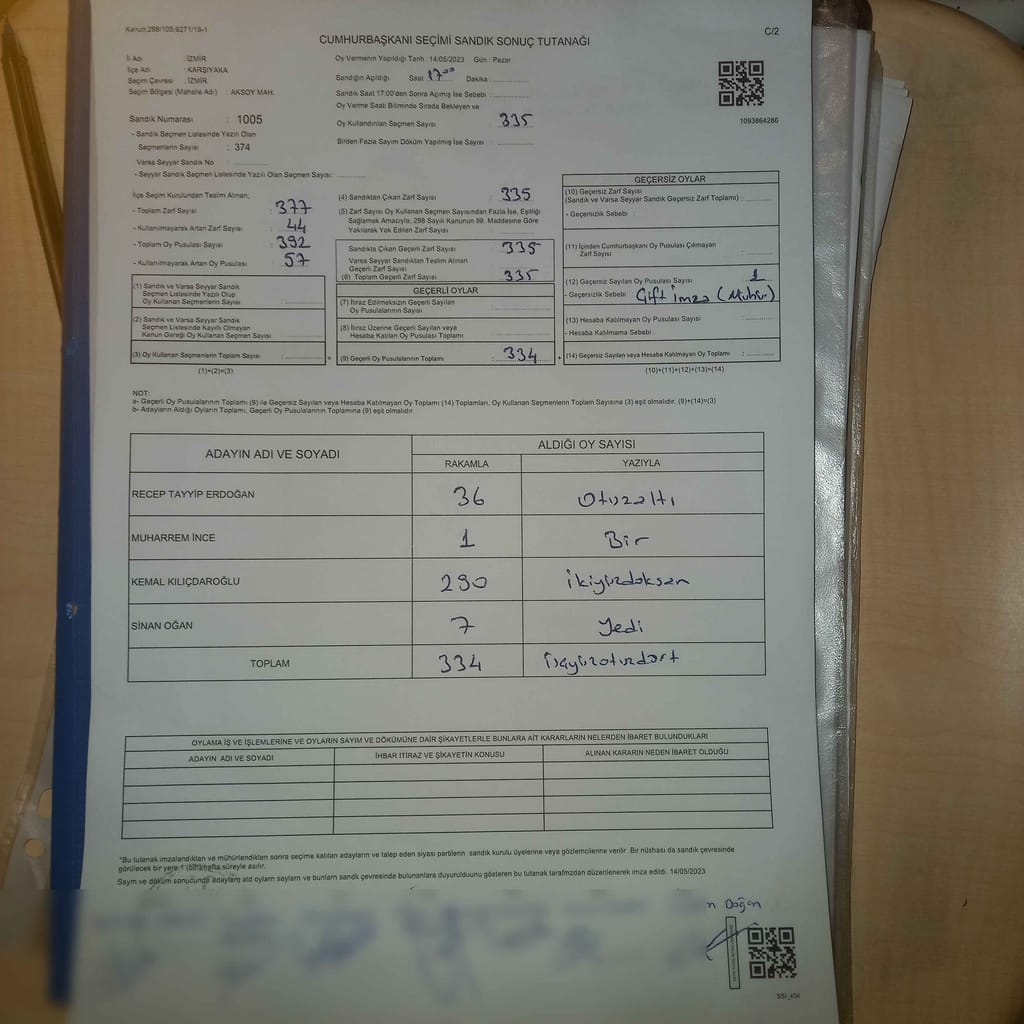 Kanun,298/105,6271/18-1
C/2
CUMHURBAŞKANI SEÇİMİ SANDIK SONUÇ TUTANAĞI
İl Adı : İZMİR
İlçe Adı : KARŞIYAKA
Seçim Çevresi : İZMİR
Seçim Bölgesi (Mahalle Adı) : AKSOY MAH.
Sandık Numarası : 1005
- Sandık Seçmen Listesinde Yazılı Olan
Seçmenlerin Sayısı : 374
Varsa Seyyar Sandık No :
- Seyyar Sandık Seçmen Listesinde Yazılı Olan Seçmen Sayısı:
Oy Vermenin Yapıldığı Tarih : 14/05/2023 Gün : Pazar
Sandığın Açıldığı Saat 17⁰⁰ Dakika :
Sandık Saat 17:00'den Sonra Açımış İse Sebebi :
Oy Verme Saati Bitiminde Sırada Bekleyen ve
Oy Kullandırılan Seçmen Sayısı : 335
Birden Fazla Sayım Döküm Yapılmış İse Sayısı :
1093864286
İlçe Seçim Kurulundan Teslim Alınan;
- Toplam Zarf Sayısı : 377
- Kullanılmayarak Artan Zarf Sayısı : 44
- Toplam Oy Pusulası Sayısı : 392
- Kullanılmayarak Artan Oy Pusulası : 57
(1) Sandık ve Varsa Seyyar Sandık
Seçmen Listesinde Yazılı Olup
Oy Kullanan Seçmenlerin Sayısı :
(2) Sandık ve Varsa Seyyar Sandık
Seçmen Listesinde Kayıtlı Olmayan
Kanun Gereği Oy Kullanan Seçmen Sayısı :
(3) Oy Kullanan Seçmenlerin Toplam Sayısı : =
(1)+(2)=(3)
(4) Sandıktan Çıkan Zarf Sayısı : 335
(5) Zarf Sayısı Oy Kullanan Seçmen Sayısından Fazla İse, Eşitliği
Sağlamak Amacıyla; 298 Sayılı Kanunun 98. Maddesine Göre
Yakılarak Yok Edilen Zarf Sayısı :
Sandıkta Çıkan Geçerli Zarf Sayısı : 335
Varsa Seyyar Sandıktan Teslim Alınan
Geçerli Zarf Sayısı :
(6) Toplam Geçerli Zarf Sayısı : 335
GEÇERLİ OYLAR
(7) İtiraz Edilmeksizin Geçerli Sayılan
Oy Pusulasının Sayısı :
(8) İtiraz Üzerine Geçerli Sayılan veya
Hesaba Katılan Oy Pusulası Toplamı :
(9) Geçerli Oy Pusulalarının Toplamı : 334 +
GEÇERSİZ OYLAR
(10) Geçersiz Zarf Sayısı
(Sandık ve Varsa Seyyar Sandık Geçersiz Zarf Toplamı) :
- Geçersizlik Sebebi :
(11) İçinden Cumhurbaşkanı Oy Pusulası Çıkmayan
Zarf Sayısı :
(12) Geçersiz Sayılan Oy Pusulası Sayısı : 1
- Geçersizlik Sebebi : Çift İmza (Mühür)
(13) Hesaba Katılmayan Oy Pusulası Sayısı :
- Hesaba Katılmama Sebebi :
(14) Geçersiz Sayılan veya Hesaba Katılmayan Oy Toplamı :
(10)+(11)+(12)+(13)=(14)
NOT:
a- Geçerli Oy Pusulalarının Toplamı (9) ile Geçersiz Sayılan veya Hesaba Katılmayan Oy Toplamı (14) Toplamları, Oy Kullanan Seçmenlerin Toplam Sayısına (3) eşit olmalıdır. (9)+(14)=(3)
b- Adayların Aldığı Oyların Toplamı, Geçerli Oy Pusulalarının Toplamına (9) eşit olmalıdır.
ADAYIN ADI VE SOYADI ALDIĞI OY SAYISI
RAKAMLA YAZIYLA
RECEP TAYYİP ERDOĞAN 36 Otuzaltı
MUHARREM İNCE 1 Bir
KEMAL KILIÇDAROĞLU 290 ikiyüzdoksan
SİNAN OĞAN 7 Yedi
TOPLAM 334 Üçyüzotuzdört
OYLAMA İŞ VE İŞLEMLERİNE VE OYLARIN SAYIM VE DÖKÜMÜNE DAİR ŞİKAYETLERLE BUNLARA AİT KARARLARIN NELERDEN İBARET BULUNDUKLARI
ADAYIN ADI VE SOYADI İHBAR İTİRAZ VE ŞİKAYETİN KONUSU ALINAN KARARIN NEDEN İBARET OLDUĞU
*Bu tutanak imzalandıktan ve mühürlendikten sonra seçime katılan adayların ve talep eden siyasi partilerin sandık kurulu üyelerine veya gözlemcilerine verilir. Bir nüshası da sandık çevresinde
görülecek bir yere 1 (bir) hafta süreyle asılır.
Sayım ve döküm sonucunda adayların aldı oyların sayıları ve bunların sandık çevresinde bulunanlara duyurulduğunu gösteren bu tutanak tarafımızdan düzenlenerek imza edildi. 14/05/2023
n Doğan
SSI_404